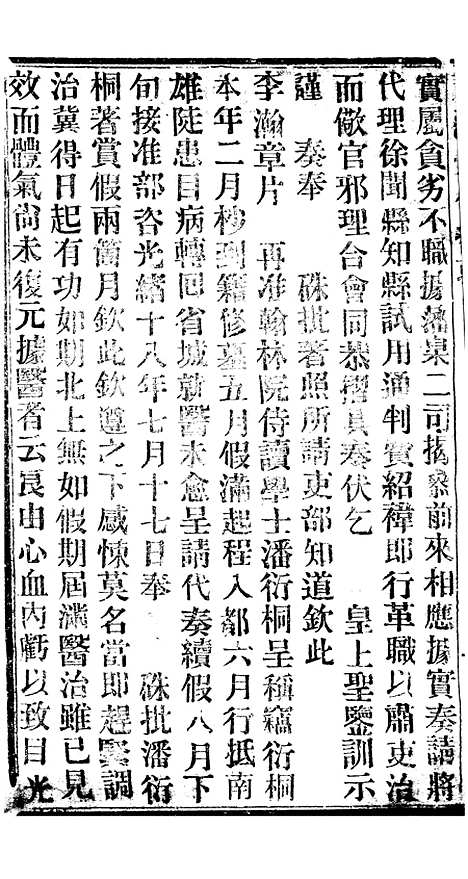 實屬貪劣不職據藩臬二司揭參前來相應據實奏請將
代理徐聞縣知縣試用通判賓紹禕即行革職以肅吏治
而儆官邪理合會同恭摺具奏伏乞　皇上聖鑒訓示
謹　奏奉　硃批著照所請吏部知道欽此
李瀚章片　再准翰林院侍讀學士潘衍桐呈稱竊衍桐
本年二月杪到籍修墓五月假滿起程入都六月行抵南
雄陡患目病轉囘省城就醫未愈呈請代奏續假八月下
旬接准部咨光緒十八年七月十七日奉　硃批潘衍
桐著賞假兩箇月欽此欽遵之下感悚莫名當即趕緊調
治冀得日起有功如期北上無如假期屆滿醫治雖已見
效而體氣尙未復元據醫者云良由心血內虧以致目光